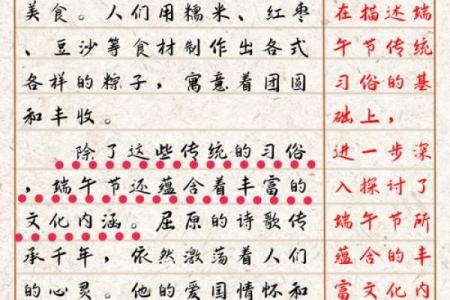 美食。人们用糯米、红枣
、豆沙等食材制作出各式
各样的粽子，寓意着团圆
和丰收。
除了这些传统的习俗
，端午节还蕴含着丰富的
文化内涵。屈原的诗歌传
承千年，依然激荡着人们
的心灵。他的爱国情怀和
在描述端
午节传统
习俗的基
础上，
进一步深
入探讨了
端午节所
蕴含的丰
富文化内